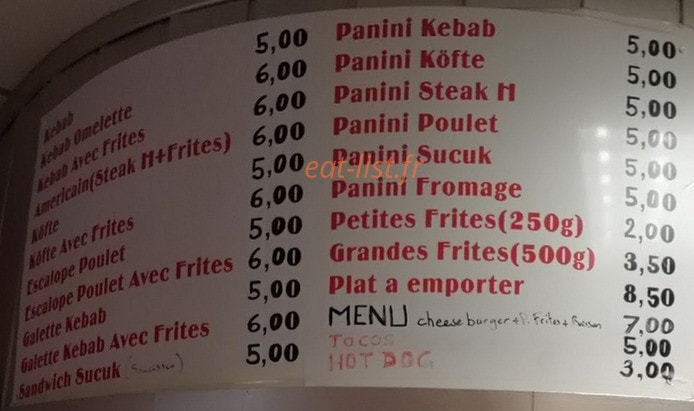 Kebab 5,00
Kebab Omelette 6,00
Kebab Avec Frites 6,00
Americain(Steak H+Frites) 6,00
Köfte 5,00
Köfte Avec Frites 6,00
Escalope Poulet 5,00
Escalope Poulet Avec Frites 6,00
Galette Kebab 5,00
Galette Kebab Avec Frites 6,00
Sandwich Sucuk (Saucisson) 5,00
Panini Kebab 5,00
Panini Köfte 5,00
Panini Steak H 5,00
Panini Poulet 5,00
Panini Sucuk 5,00
Panini Fromage 5,00
Petites Frites(250g) 2,00
Grandes Frites(500g) 3,50
Plat a emporter 8,50
MENU cheeseburger+P. Frites+Boisson 7,00
Tacos 5,00
HOT DOG 3,00
eat-list.fr